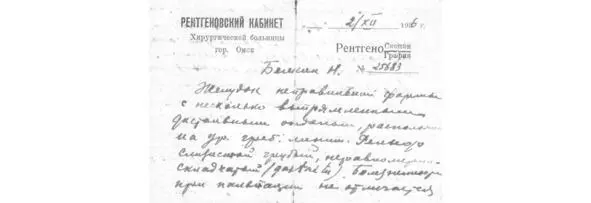 РЕНТГЕНОВСКИЙ КАБИНЕТ
Хирургической больницы
гор. Омск
2/XII 1956 г.
Рентгено Скопия
Графия
№ 25683
Желудок неправильной формы
с несколько выпрямленным
дистальным отделом, располож
на ур. греб. линии. Рельеф
слизистой грубый, неравномерно
складчатый (gastritis). Болезненность
при пальпации не отмечается